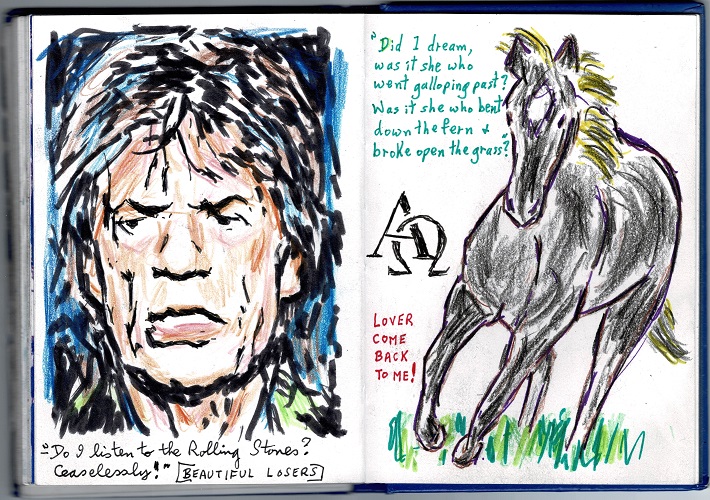 "Do I listen to the Rolling Stones?
Ceaselessly!" [BEAUTIFUL LOSERS]
"Did I dream,
was it she who
went galloping past?
Was it she who bent
down the fern +
broke open the grass?"
ΑΩ
LOVER
COME
BACK
TO ME!